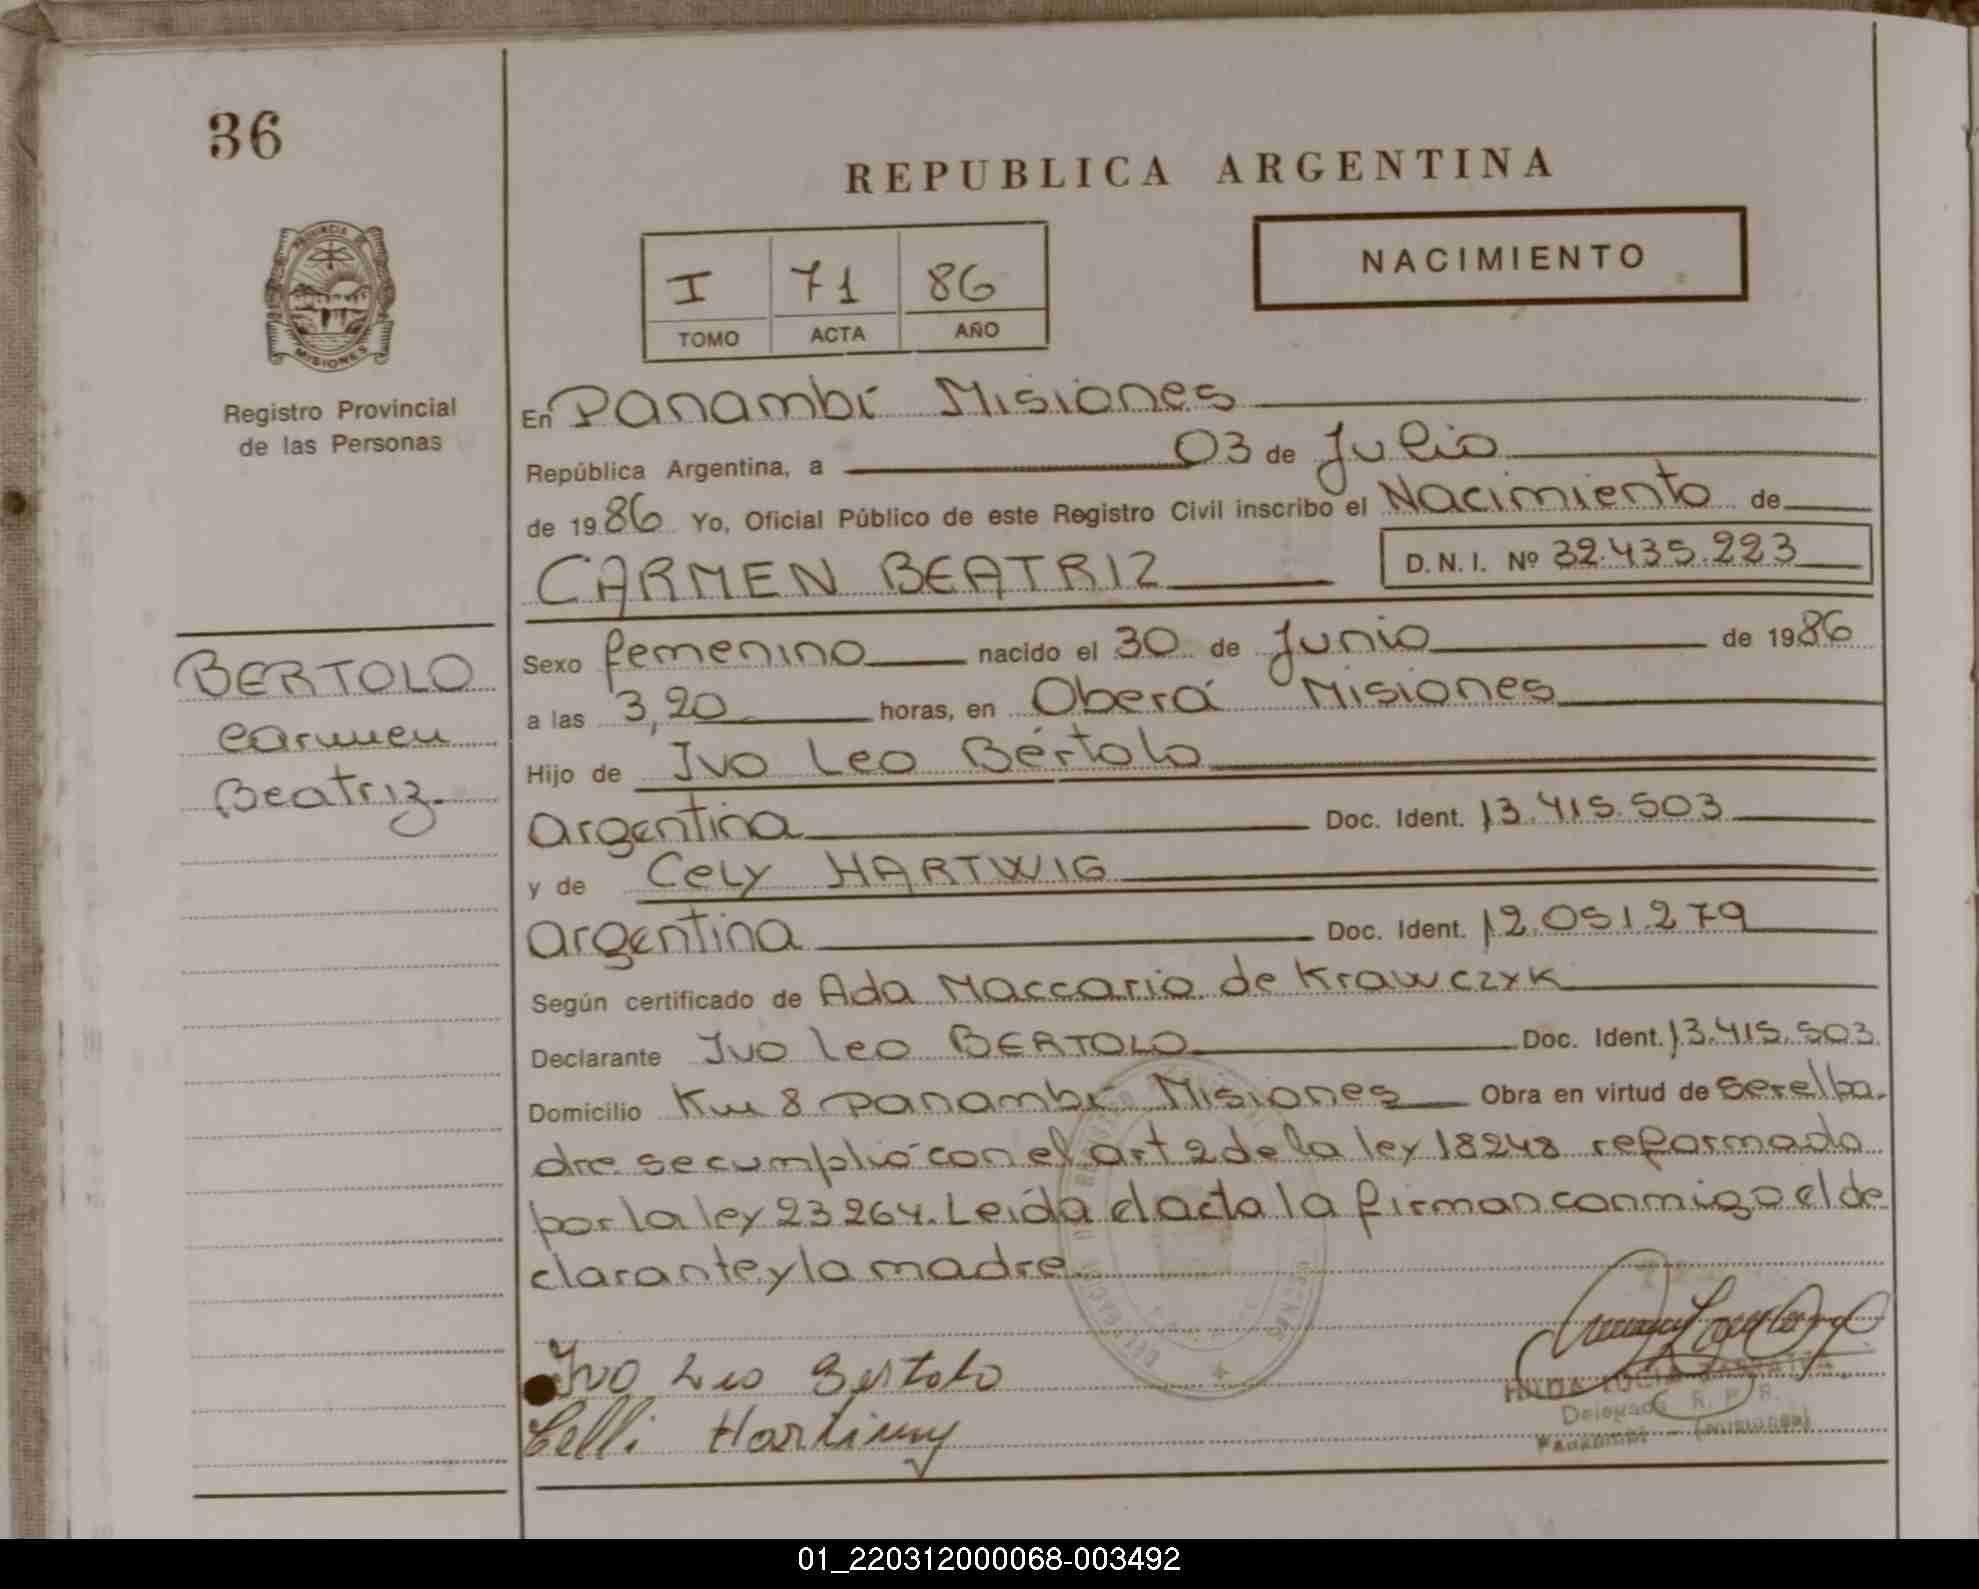 36
REPUBLICA ARGENTINA
NACIMIENTO
I 71 86
TOMO ACTA AÑO
PROVINCIA DE
MISIONES
Registro Provincial
de las Personas
BERTOLO
Carmen
Beatriz.
En Panambí Misiones
República Argentina, a 03 de Julio
de 1986 Yo, Oficial Público de este Registro Civil inscribo el Nacimiento de
CARMEN BEATRIZ D.N.I. Nº 32.435.223
Sexo femenino nacido el 30 de Junio de 1986
a las 3,20 horas, en Oberá Misiones
Hijo de Ivo Leo Bértolo
argentina Doc. Ident. 13.415.503
y de Cely HARTWIG
argentina Doc. Ident. 12.051.279
Según certificado de Ada Maccario de Krawczyk
Declarante Ivo Leo BERTOLO Doc. Ident. 13.415.503
Domicilio Km 8 Panambí Misiones Obra en virtud de ser el pa-
dre se cumplió con el art 2 de la ley 18248 reformado
por la ley 23264. Leída el acta la firman conmigo el de
clarante y la madre
Ivo Leo Bertolo
Celli Hartwig
HILDA LUCIA
Delegada R. P. P.
Panambí - (Misiones)
01_220312000068-003492